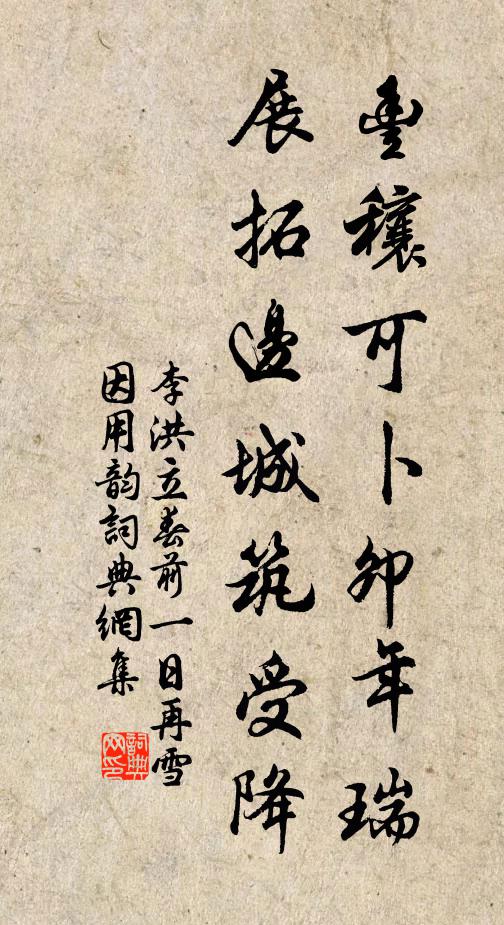 豊穰可卜卯年瑞
展拓邊城筑受降
李洪立春前一日再雪
因用韵詞典網集
詞典網印